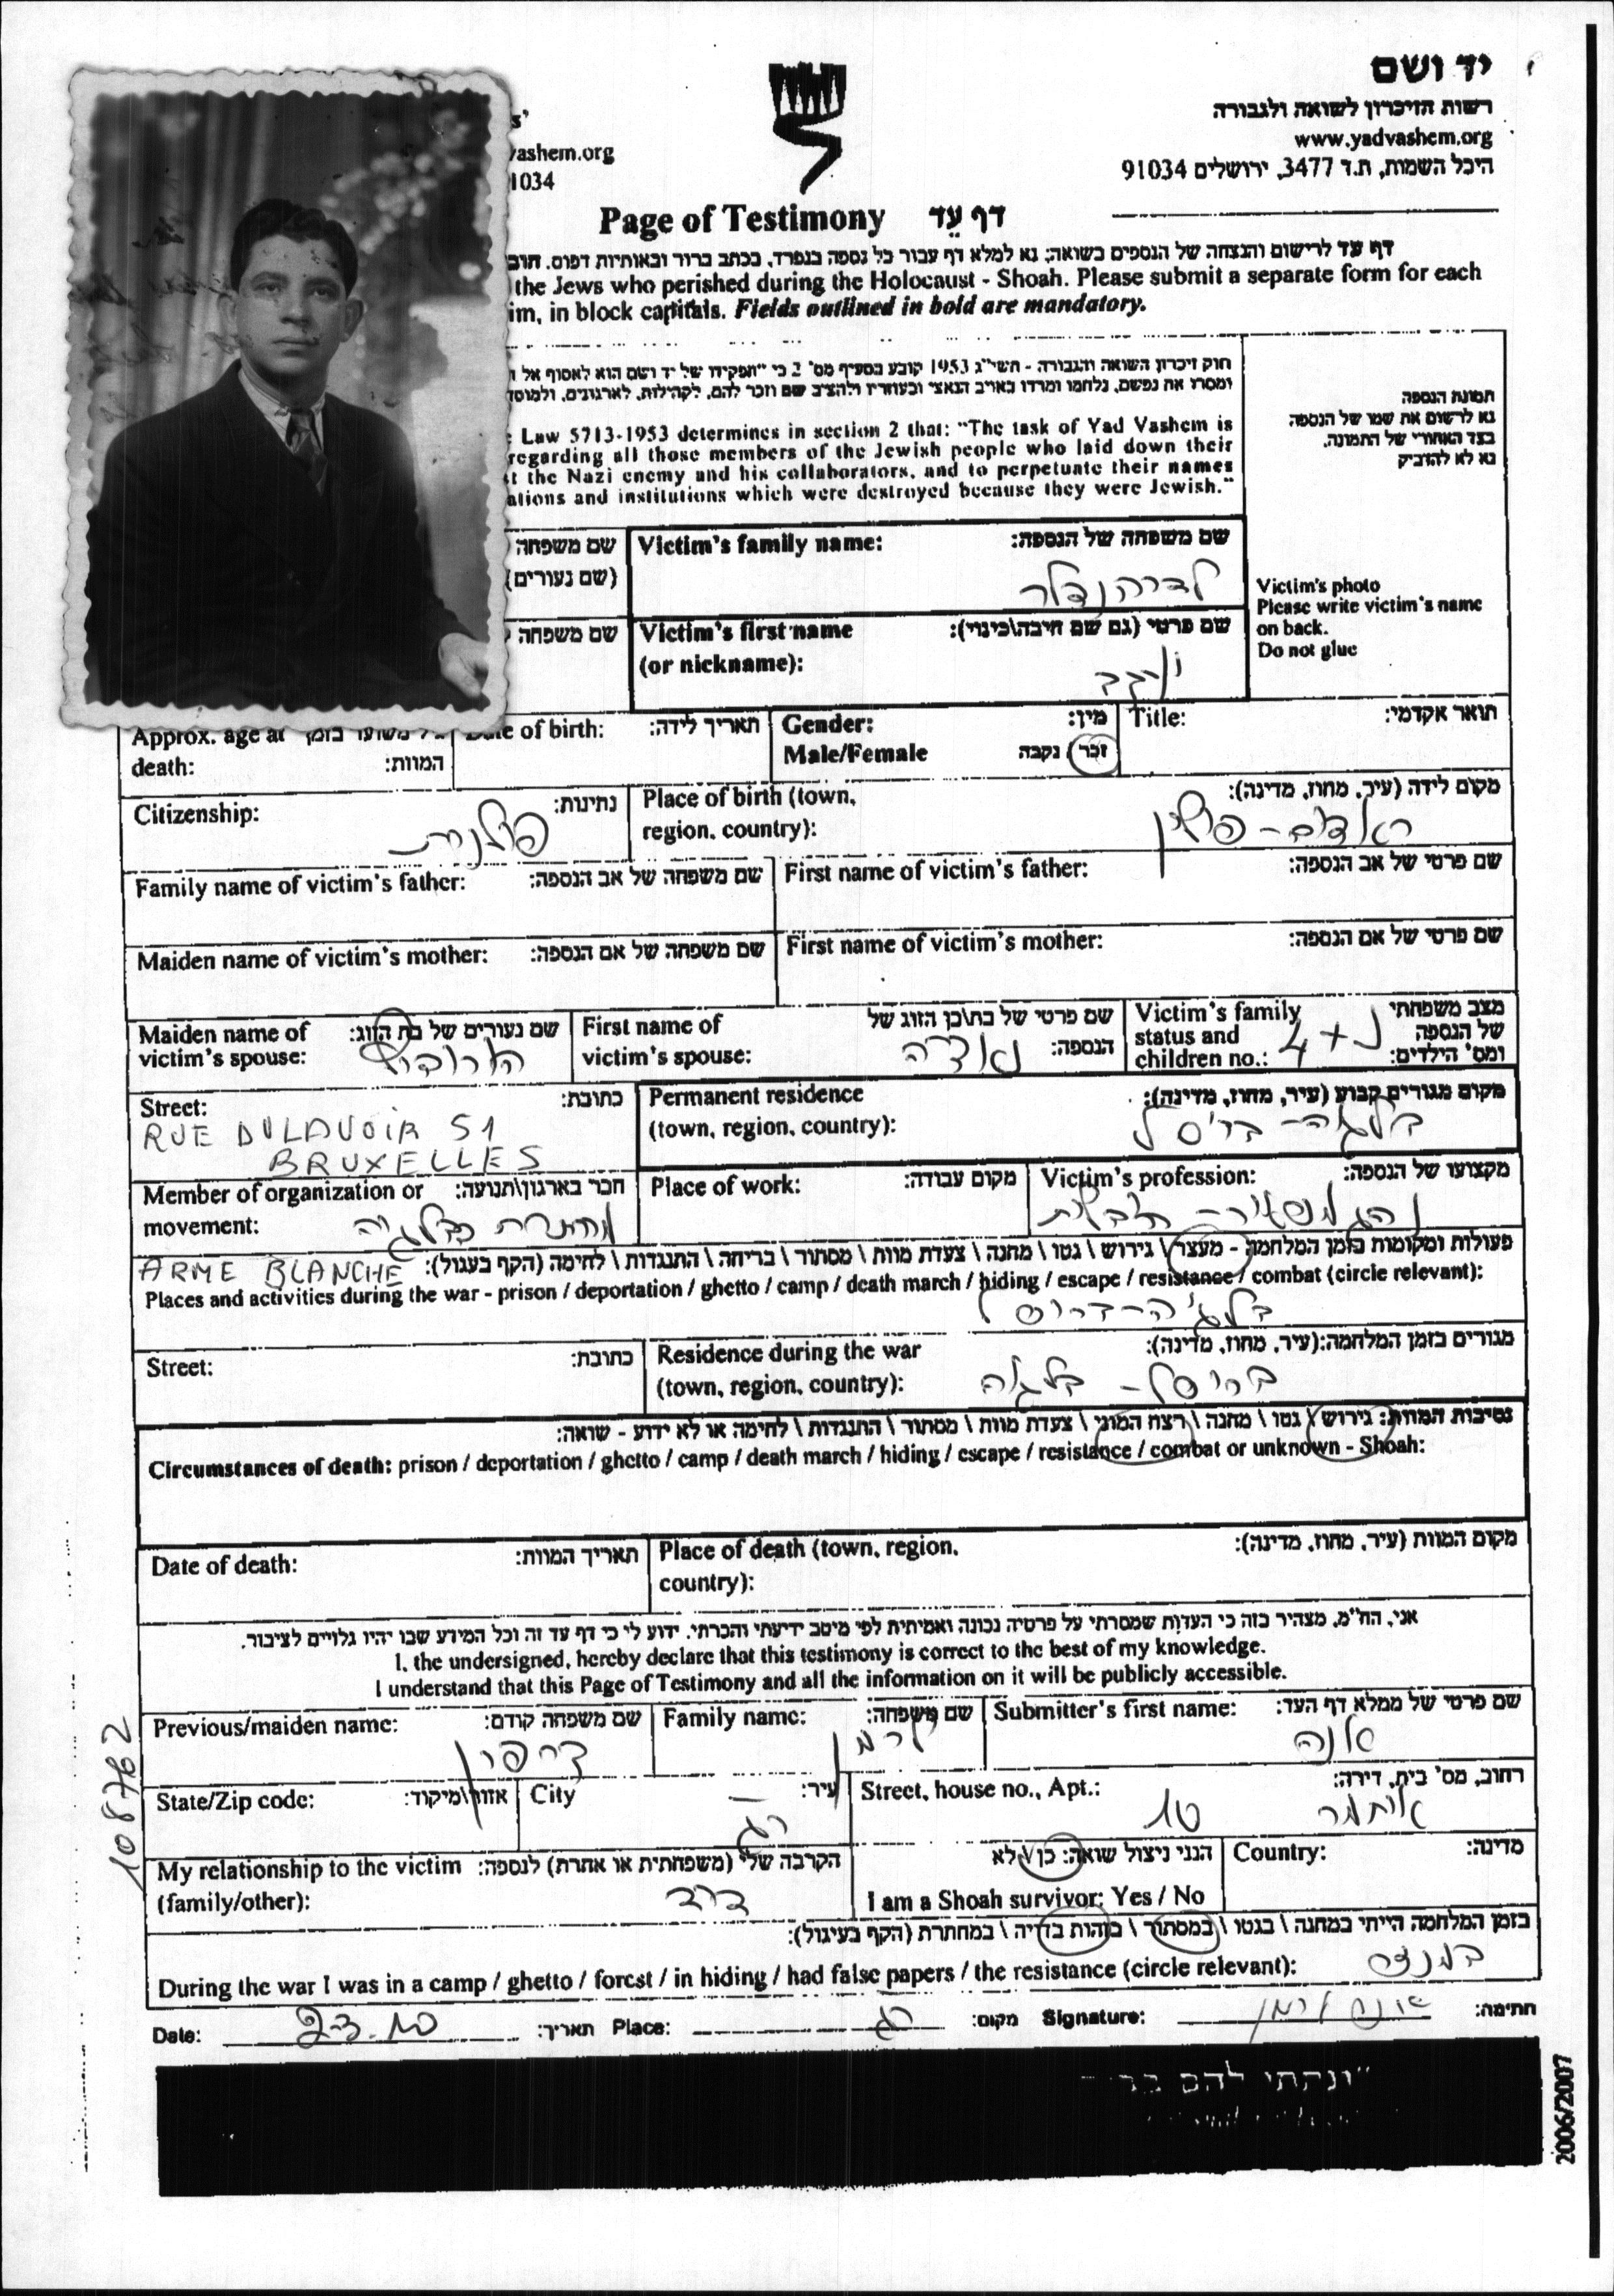 יד ושם
רשות הזיכרון לשואה ולגבורה
www.yadvashem.org
היכל השמות, ת.ד 3477, ירושלים 91034
vashem.org
1034
Page of Testimony דף עֵד
דף עד לרישום והנצחה של הנספים בשואה; נא למלא דף עבור כל נספה בנפרד, בכתב ברור ובאותיות דפוס.
the Jews who perished during the Holocaust - Shoah. Please submit a separate form for each
im, in block capitals. Fields outlined in bold are mandatory.
חוק זיכרון השואה והגבורה - תשי"ג 1953 קובע בסעיף מס' 2 כי "תפקידו של יד ושם הוא לאסוף אל
ומסרו את נפשם, נלחמו ומרדו באויב הנאצי ובעוזריו ולהציב שם וזכר להם, לקהילות, לארגונים, ולמוסד
Law 5713-1953 determines in section 2 that: "The task of Yad Vashem is
regarding all those members of the Jewish people who laid down their
t the Nazi enemy and his collaborators, and to perpetuate their names
ations and institutions which were destroyed because they were Jewish."
תמונת הנספה
נא לרשום את שמו של הנספה
בצד האחורי של התמונה.
נא לא להדביק
Victim's photo
Please write victim's name
on back.
Do not glue
שם משפחה
(שם נעורים)
Victim's family name: שם משפחה של הנספה:
שם משפחה
Victim's first name שם פרטי (גם שם חיבה\כינוי):
(or nickname):
Approx. age at
death: המוות:
of birth: תאריך לידה:
Gender: מין:
Male/Female זכר / נקבה
Title: תואר אקדמי:
Citizenship: נתינות:
פולנית
Place of birth (town, מקום לידה (עיר, מחוז, מדינה):
region, country):
Family name of victim's father: שם משפחה של אב הנספה:
First name of victim's father: שם פרטי של אב הנספה:
Maiden name of victim's mother: שם משפחה של אם הנספה:
First name of victim's mother: שם פרטי של אם הנספה:
Maiden name of שם נעורים של בת הזוג:
victim's spouse:
First name of שם פרטי של בת\בן הזוג של
victim's spouse: הנספה:
Victim's family מצב משפחתי
status and של הנספה
children no.: ומס' הילדים:
נ + 4
Street: כתובת:
RUE DULAVOIR 51
BRUXELLES
Permanent residence מקום מגורים קבוע (עיר, מחוז, מדינה):
(town, region, country):
בלגיה - בריסל
Member of organization or חבר בארגון\תנועה:
movement: מחתרת בבלגיה
Place of work: מקום עבודה:
Victim's profession: מקצועו של הנספה:
ARME BLANCHE
פעולות ומקומות בזמן המלחמה - מעצר \ גירוש \ גטו \ מחנה \ צעדת מוות \ מסתור \ בריחה \ התנגדות \ לחימה (הקף בעגול):
Places and activities during the war - prison / deportation / ghetto / camp / death march / hiding / escape / resistance / combat (circle relevant):
בלגיה - בריסל
Street: כתובת:
Residence during the war מגורים בזמן המלחמה:(עיר, מחוז, מדינה):
(town, region, country):
בריסל - בלגיה
נסיבות המוות: גירוש \ גטו \ מחנה \ רצח המוני \ צעדת מוות \ מסתור \ התנגדות \ לחימה או לא ידוע - שואה:
Circumstances of death: prison / deportation / ghetto / camp / death march / hiding / escape / resistance / combat or unknown - Shoah:
Date of death: תאריך המוות:
Place of death (town, region, מקום המוות (עיר, מחוז, מדינה):
country):
אני, הח"מ, מצהיר בזה כי העדות שמסרתי על פרטיה נכונה ואמיתית לפי מיטב ידיעתי והכרתי. ידוע לי כי דף עד זה וכל המידע שבו יהיו גלויים לציבור.
I, the undersigned, hereby declare that this testimony is correct to the best of my knowledge.
I understand that this Page of Testimony and all the information on it will be publicly accessible.
Previous/maiden name: שם משפחה קודם:
Family name: שם משפחה:
לרמן
Submitter's first name: שם פרטי של ממלא דף העד:
אנה
State/Zip code: אזור\מיקוד:
City עיר:
רג
Street, house no., Apt.: רחוב, מס' בית, דירה:
איתמר 10
My relationship to the victim הקרבה שלי (משפחתית או אחרת) לנספה:
(family/other):
הנני ניצול שואה: כן \ לא
I am a Shoah survivor: Yes / No
Country: מדינה:
בזמן המלחמה הייתי במחנה \ בגטו \ במסתור \ בזהות בדויה \ במחתרת (הקף בעיגול):
During the war I was in a camp / ghetto / forest / in hiding / had false papers / the resistance (circle relevant):
במנזר
Date: תאריך: Place: רג מקום: Signature: אנה לרמן חתימה:
"ונתתי להם
108762
2006/2007